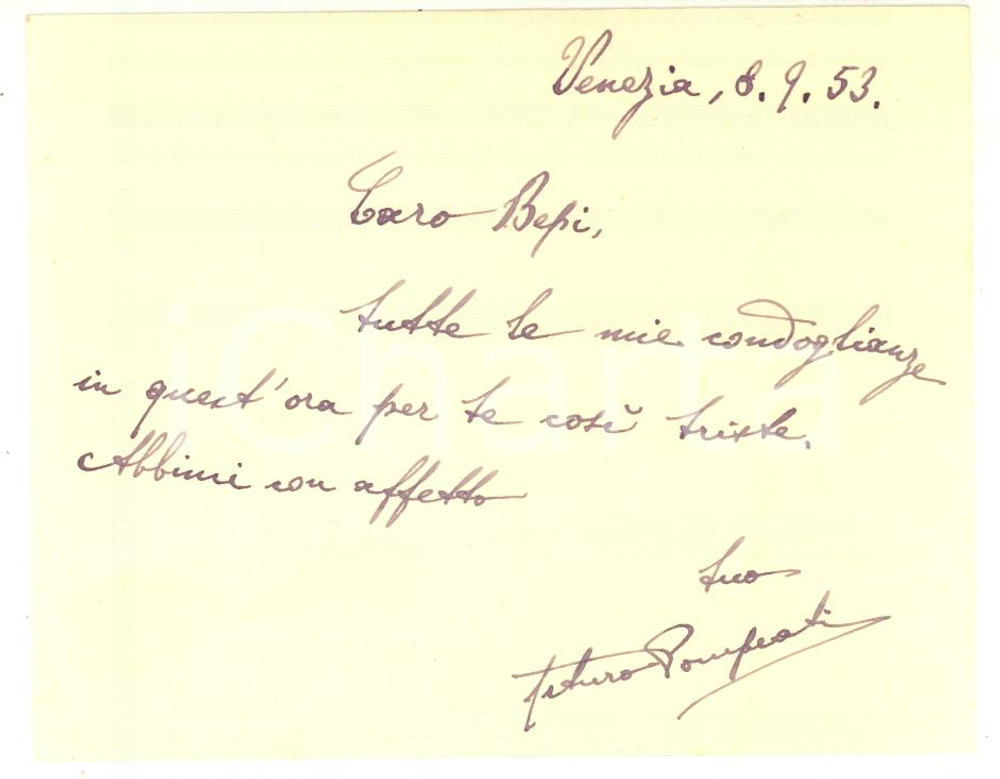 Venezia, 8. 9. 53.
Caro Bepi,
tutte le mie condoglianze
in quest'ora per te così triste.
Abbimi con affetto
tuo
Arturo Pompeati
iCharta